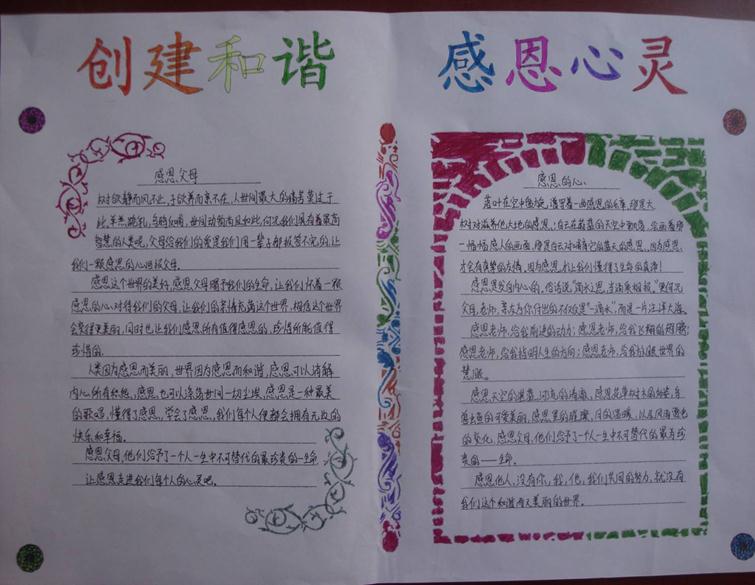 创建和谐
感恩父母
树欲静而风不止,子欲养而亲不在,人世间最大的痛苦莫过于
此,羊羔跪乳,乌鸦反哺,世间动物尚且如此,何况我们具有最高
智慧的人类吧,父母给我们的爱是我们用一辈子都报答不完的,让
我们一颗感恩的心回报父母。
感恩这个世界的美好,感恩父母赐予我们的生命,让我们怀着一颗
感恩的心对待我们的父母,让我们的亲情充满这个世界,相信这个世界
会变得更美丽,同时也让我们感恩所有值得感恩的,珍惜所能值得
珍惜的。
人类因为感恩而美丽,世界因为感恩而和谐,感恩可以消解
内心所有积怨,感恩也可以涤荡世间一切尘埃,感恩是一种最美
的歌唱,懂得了感恩,学会了感恩,我们每个人便都会拥有无边的
快乐和幸福。
感恩父母,他们给予了一个人一生中不可替代的最珍贵的一生命
让感恩走进我们每个人的心灵吧。
感恩心灵
感恩的心
落叶在空中盘旋,谱写着一曲感恩的乐章,那是大
树对滋养他大地的感恩;白云在蔚蓝的天空中飘荡,绘画着那
一幅幅感人的画面,那是白云对哺育它的蓝天的感恩。因为感恩
才会有真挚的友情,因为感恩才让我们懂得了生命的真谛!
感恩是发自内心的,俗话说“滴水之恩,当涌泉相报。”更何况
父母,老师,亲友为你付出的不仅仅是“一滴水”,而是一片汪洋大海。
感恩老师,给我前进的动力;感恩老师,给我飞翔的翅膀;
感恩老师,给我指明人生的方向;感恩老师,给我放眼世界的
慧眼。
感恩天空的湛蓝,
感恩父母,他们给予了一个人一生中不可替代的最为珍
贵的——生命。
感恩他人,没有你,我,他,我们共同的努力,就没有
我们这个和谐而又美丽的世界。